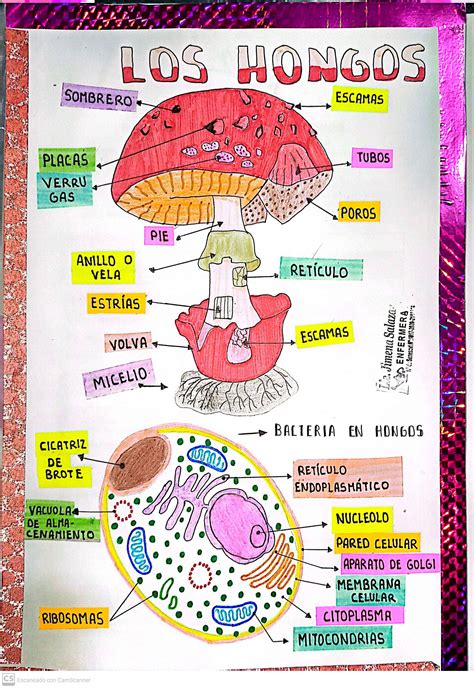 LOS HONGOS
SOMBRERO
ESCAMAS
PLACAS
TUBOS
VERRU
GAS
POROS
PIE
ANILLO O
VELA
RETÍCULO
ESTRÍAS
VOLVA
ESCAMAS
MICELIO
Jimena Salazar
ENFERMERA
BACTERIA EN HONGOS
CICATRIZ
DE
BROTE
RETÍCULO
ENDOPLASMÁTICO
VACUOLA
DE ALMA-
CENAMIENTO
NUCLEOLO
PARED CELULAR
APARATO DE GOLGI
MEMBRANA
CELULAR
RIBOSOMAS
CITOPLASMA
MITOCONDRIAS
CS Escaneado con CamScanner